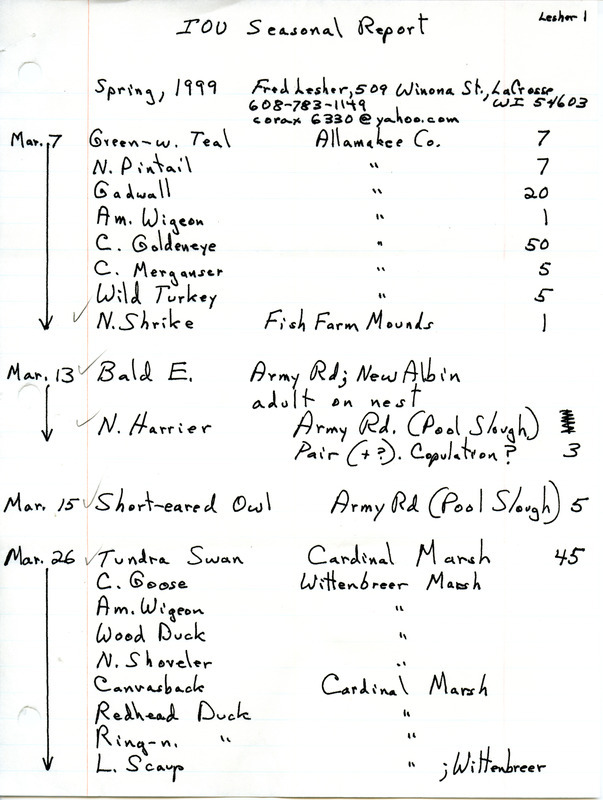 Lesher 1
IOU Seasonal Report
Spring, 1999 Fred Lesher, 509 Winona St., LaCrosse
608-783-1149 WI 54603
corax6330@yahoo.com
Mar. 7 Green-w. Teal Allamakee Co. 7
N. Pintail " 7
Gadwall " 20
Am. Wigeon " 1
C. Goldeneye " 50
C. Merganser " 5
Wild Turkey " 5
✓ N. Shrike Fish Farm Mounds 1
Mar. 13 ✓ Bald E. Army Rd; New Albin
adult on nest
✓ N. Harrier Army Rd. (Pool Slough)
Pair (+?). Copulation? 3
Mar. 15 ✓ Short-eared Owl Army Rd (Pool Slough) 5
Mar. 26 ✓ Tundra Swan Cardinal Marsh 45
C. Goose Wittenbreer Marsh
Am. Wigeon "
Wood Duck "
N. Shoveler "
Canvasback Cardinal Marsh
Redhead Duck "
Ring-n. " "
L. Scaup " ; Wittenbreer